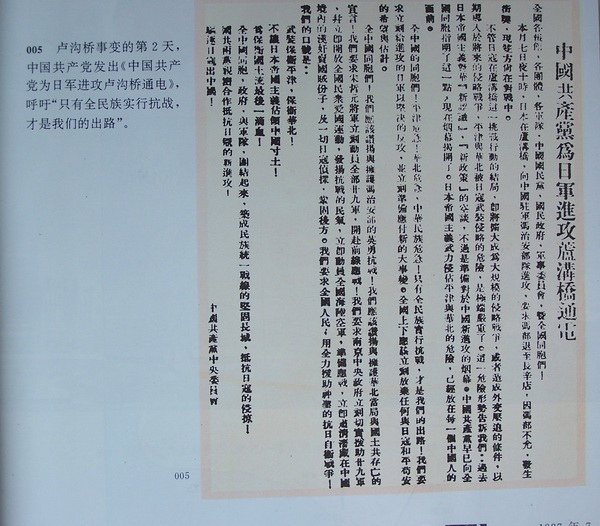 005 卢沟桥事变的第2天，
中国共产党发出《中国共产
党为日军进攻卢沟桥通电》，
呼吁“只有全民族实行抗战，
才是我们的出路”。
中國共產黨為日軍進攻蘆溝橋通電
全國各報館，各團體，各軍隊，中國國民黨，國民政府，軍事委員會，暨全國同胞們！
本月七日夜十時，日本在蘆溝橋，向中國駐軍馮治安部隊進攻，要求馮部退至長辛店，因馮部不允，發生
衝突，現雙方尚在對戰中。
不管日寇在蘆溝橋這一挑戰行動的結局，即將擴大成為大規模的侵略戰爭，或者造成外交壓迫的條件，以
期導入於將來的侵略戰爭，平津與華北被日寇武裝侵略的危險，是極端嚴重了。這一危險形勢告訴我們：過去
日本帝國主義對華「新認識」，「新政策」的空談，不過是準備對於中國新進攻的烟幕。中國共產黨早已向全
國同胞指明了這一點，現在烟幕揭開了。日本帝國主義武力侵佔平津與華北的危險，已經放在每一個中國人的
面前。
全中國的同胞們！平津危急！華北危急！中華民族危急！只有全民族實行抗戰，才是我們的出路！我們要
求立刻給進攻的日軍以堅決的反攻，並立刻準備應付新的大事變。全國上下應該立刻放棄任何與日寇和平苟安
的希望與估計。
全中國同胞們！我們應該讚揚與擁護馮治安部的英勇抗戰！我們應該讚揚與擁護華北當局與國土共存亡的
宣言！我們要求宋哲元將軍立刻動員全部廿九軍，開赴前線應戰！我們要求南京中央政府立刻切實援助廿九軍
，并立即開放全國民眾愛國運動，發揚抗戰的民氣，立即動員全國海陸空軍，準備應戰，立即肅清潛藏在中國
境內的漢奸賣國賊份子，及一切日寇偵探，鞏固後方。我們要求全國人民，用全力援助神聖的抗日自衛戰爭！
我們的口號是：
武裝保衛平津，保衛華北！
不讓日本帝國主義佔領中國寸土！
為保衛國土流最後一滴血！
全中國同胞，政府，與軍隊，團結起來，築成民族統一戰線的堅固長城，抵抗日寇的侵掠！
國共兩黨親密合作抵抗日寇的新進攻！
驅逐日寇出中國！
中國共產黨中央委員會
005